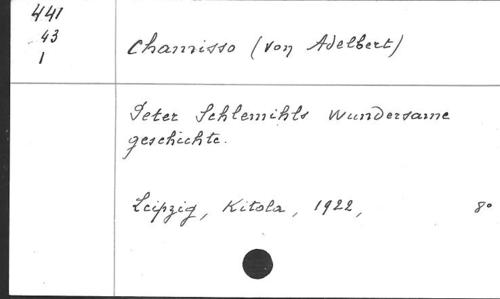 441
43
1
Chamisso (von Adelbert)
Peter Schlemihls wundersame
geschichte.
Leipzig, Kitola, 1922, 8°